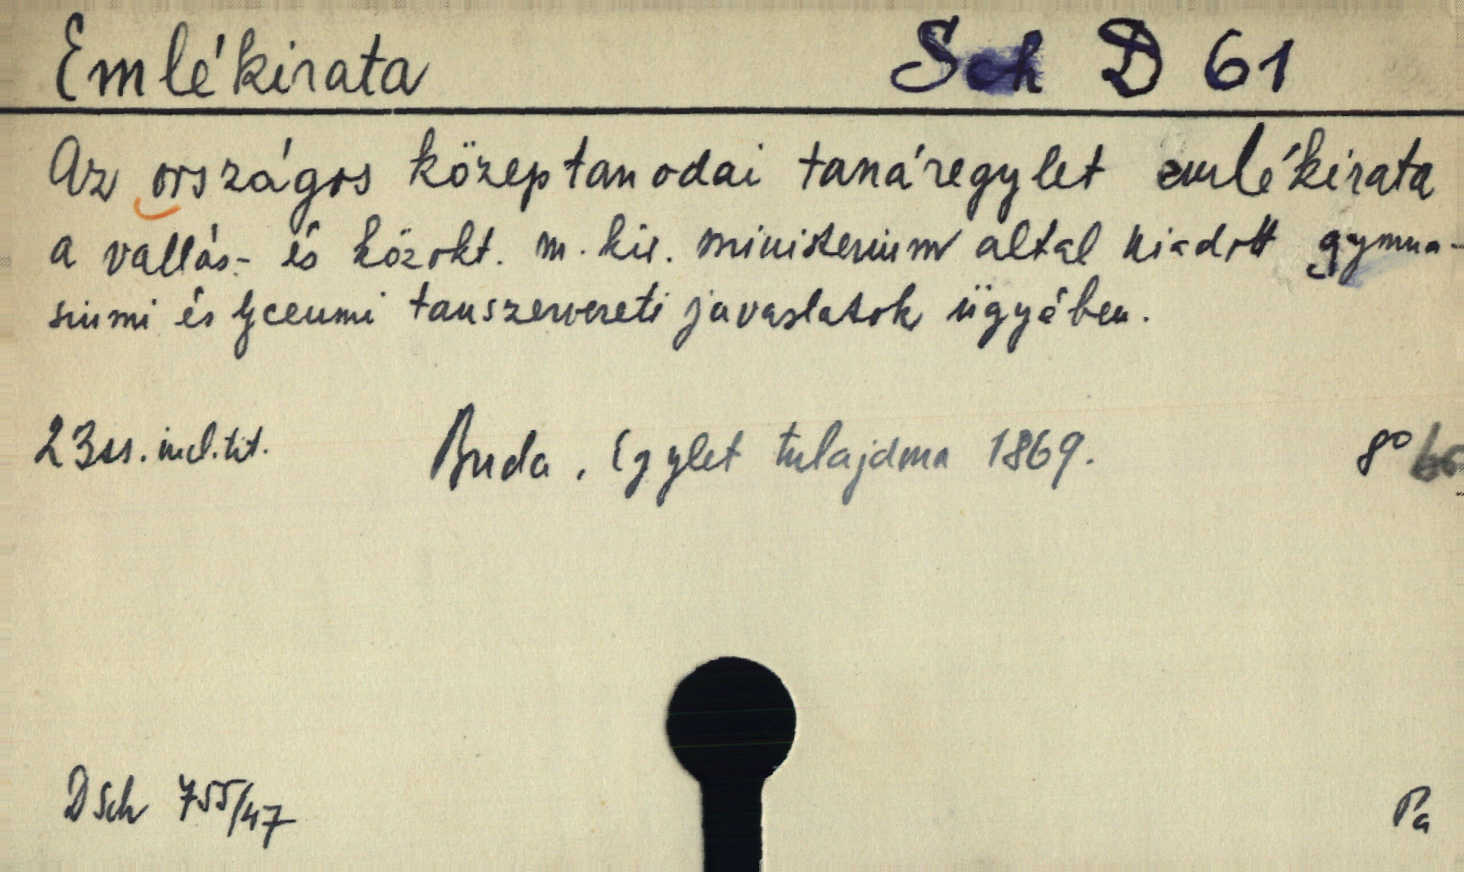 Emlékirata Sch D 61
Az országos középtanodai tanáregylet emlékirata
a vallás- és közokt. m. kir. ministerium által kiadott gymna-
siumi és lyceumi tanszervezeti javaslatok ügyében.
23 ss. incl. tit. Buda, Egylet tulajdona 1869. 8°
DSch 755/47 Pa